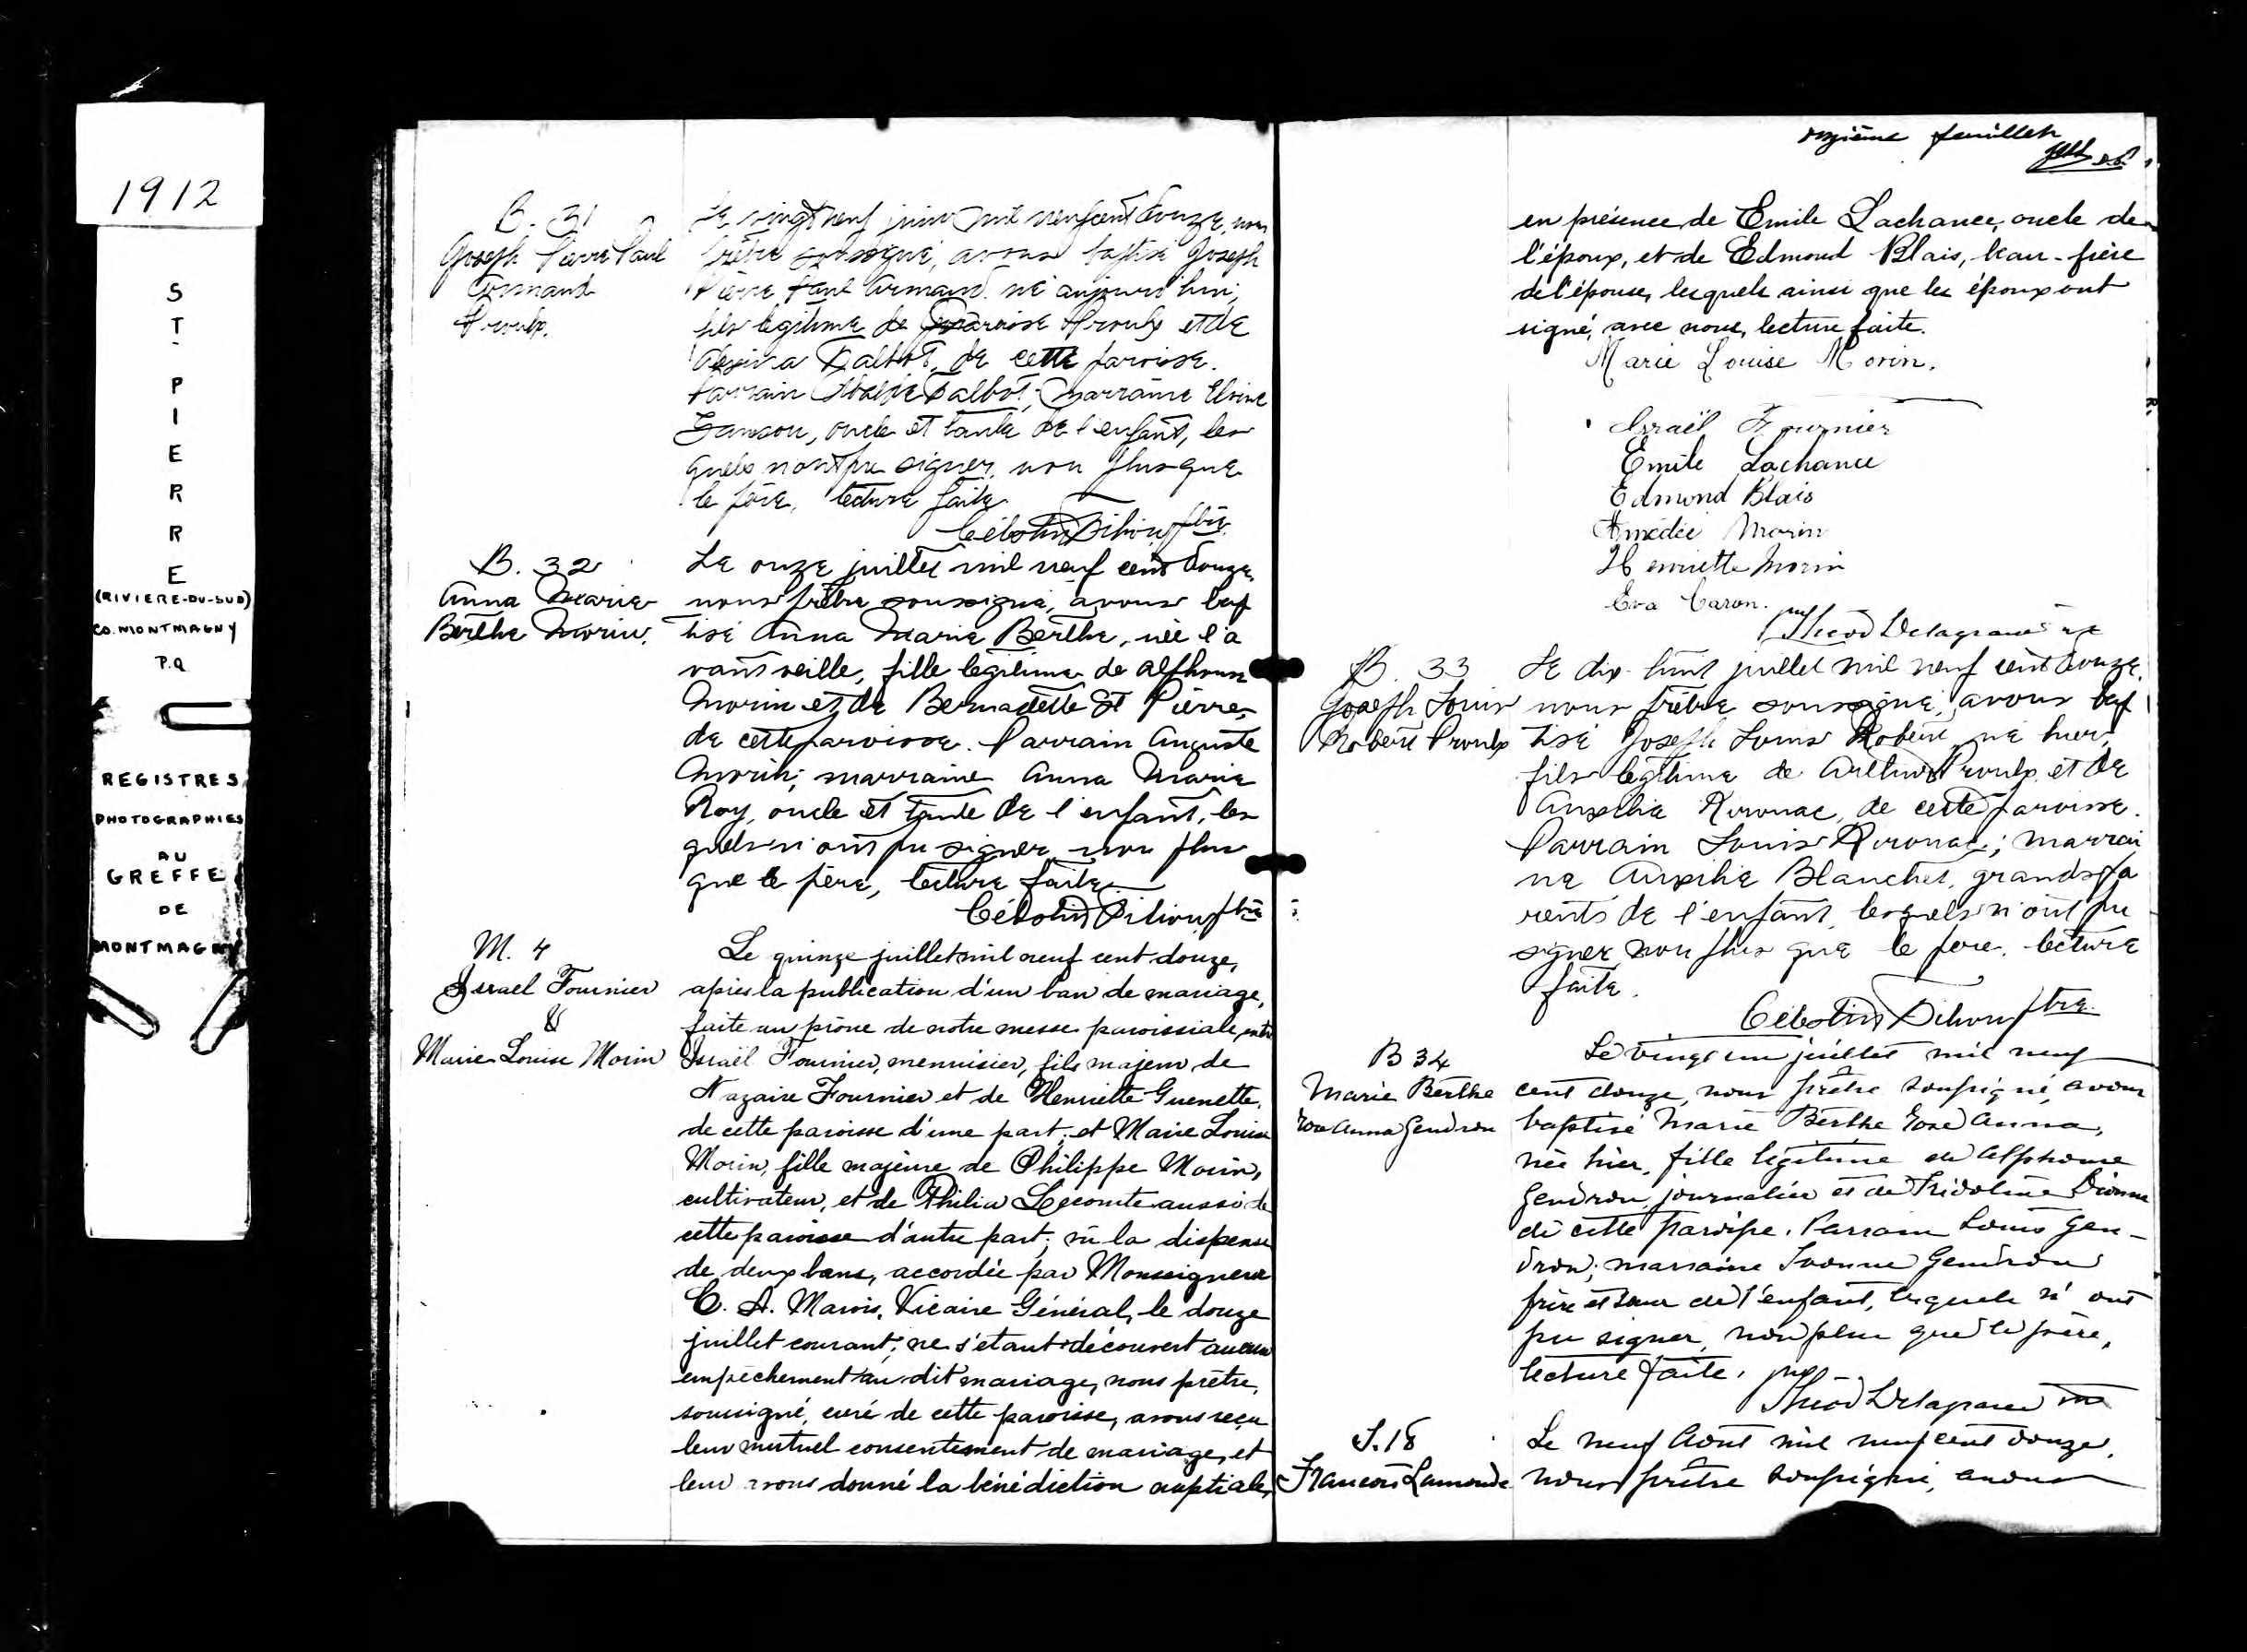 1912
ST. PIERRE
(RIVIERE-DU-SUD)
CO. MONTMAGNY
P.Q
REGISTRES
PHOTOGRAPHIES
AU
GREFFE
DE
MONTMAGNY
B. 31
Joseph Pierre Paul
Armand
Proulx.
Le vingt neuf juin mil neuf cent douze, nous
prêtre soussigné, avons baptisé Joseph
Pierre Paul Armand né aujourd'hui,
fils légitime de Proulx et de
Talbot, de cette paroisse.
Parrain Talbot; marraine
oncle et tante de l'enfant, les
quels n'ont pu signer, non plus que
le père, lecture faite.
Célestin ptre.
B. 32
Anna Marie
Berthe Morin.
Le onze juillet mil neuf cent douze,
nous prêtre soussigné, avons bap
tisé Anna Marie Berthe, née l'a
vant veille, fille légitime de Alphonse
Morin et de Bernadette St Pierre,
de cette paroisse. Parrain Auguste
Morin; marraine Anna Marie
Roy, oncle et tante de l'enfant, les
quels n'ont pu signer non plus
que le père, lecture faite.
Célestin ptre
M. 4
Israel Fournier
&
Marie Louise Morin
Le quinze juillet mil neuf cent douze,
après la publication d'un ban de mariage,
faite au prône de notre messe paroissiale, entre
Israël Fournier, menuisier, fils majeur de
Nazaire Fournier et de Henriette Guenette,
de cette paroisse d'une part; et Marie Louise
Morin, fille majeure de Philippe Morin,
cultivateur, et de Philia Lecomte aussi de
cette paroisse d'autre part; vu la dispense
de deux bans, accordée par Monseigneur
C. A. Marois, Vicaire Général, le douze
juillet courant; ne s'étant découvert aucun
empêchement au dit mariage, nous prêtre,
soussigné, curé de cette paroisse, avons reçu
leur mutuel consentement de mariage, et
leur avons donné la bénédiction nuptiale,
onzième feuillet
en présence de Emile Lachance, oncle de
l'époux, et de Edmond Blais, beau-frère
de l'épouse, lesquels ainsi que les époux ont
signé, avec nous, lecture faite.
Marie Louise Morin.
Israël Fournier
Emile Lachance
Edmond Blais
Amédée Morin
Henriette Morin
Eva Caron.
Delagrave
B. 33
Joseph Louis
Robert Proulx
Le dix-huit juillet mil neuf cent douze,
nous prêtre soussigné, avons bap
tisé Joseph Louis Robert, né hier,
fils légitime de Arthur Proulx et de
de cette paroisse.
Parrain Louis ; marrai
ne Blanchet, grands pa
rents de l'enfant, lesquels n'ont pu
signer non plus que le père, lecture
faite.
Célestin ptre.
B 34
Marie Berthe
Rose Anna Gendron
Le vingt un juillet mil neuf
cent douze, nous prêtre soussigné, avons
baptisé Marie Berthe Rose Anna,
née hier, fille légitime de Alphonse
Gendron, journalier et de Dionne
de cette paroisse. Parrain Louis Gen-
dron; marraine Ivonne Gendron
frère et soeur de l'enfant, lesquels n'ont
pu signer, non plus que le père,
lecture faite.
Delagrave
S. 18
Francois Lamonde
Le neuf Août mil neuf cent douze,
nous prêtre soussigné, avons